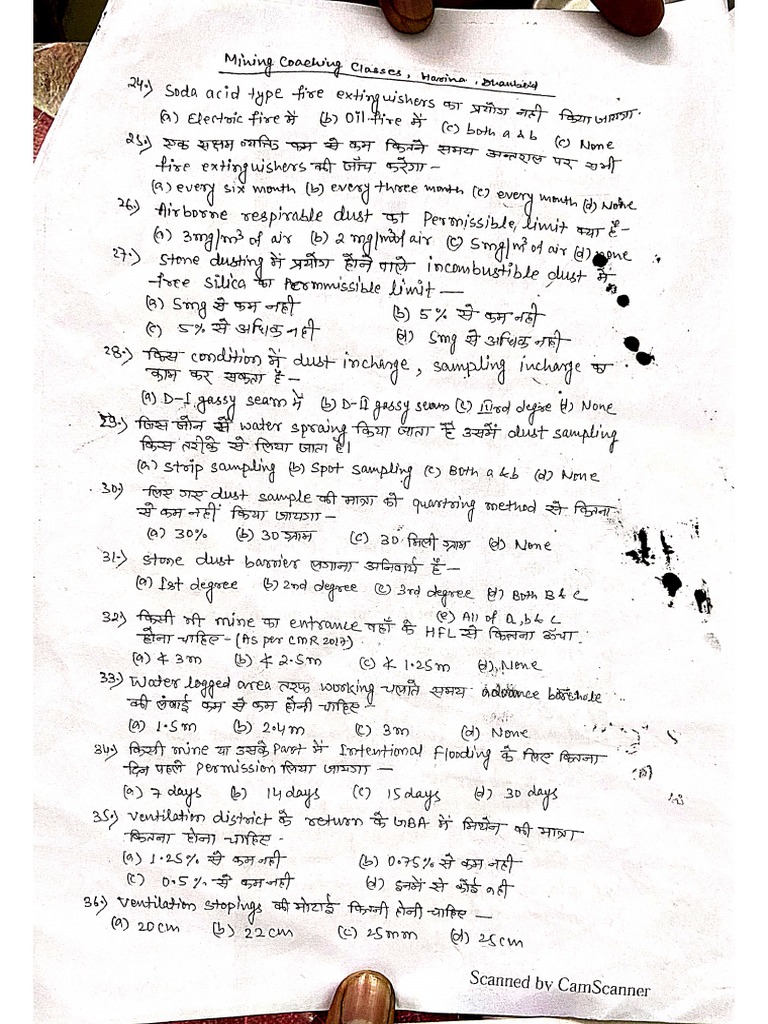 Mining Coaching Classes, Harina, Dhanbad
24.) Soda acid type fire extinguishers का प्रयोग नही किया जायगा.
(a) Electric fire में (b) Oil fire में (c) both a & b (c) None
25.) एक सक्षम व्यक्ति कम से कम कितने समय अन्तराल पर सभी
fire extinguishers की जाँच करेगा -
(a) every six month (b) every three month (c) every month (d) None
26.) Airborne respirable dust का Permissible, limit क्या है-
(a) 3mg/m³ of air (b) 2 mg/m³ of air (c) 5mg/m³ of air (d) none
27.) Stone dusting में प्रयोग होने वाले incombustible dust में
free silica का Permmissible limit —
(a) 5mg से कम नही (b) 5% से कम नही
(c) 5% से अधिक नही (d) 5mg से अधिक नही
28.) किस condition में dust incharge, sampling incharge का
काम कर सकता है -
(a) D-I gassy seam में (b) D-II gassy seam (c) IIIrd degree (d) None
29.) जिस जोन में water spraing किया जाता है उसमें dust sampling
किस तरीके से लिया जाता है।
(a) Strip sampling (b) Spot sampling (c) Both a & b (d) None
30.) लिए गए dust sample की मात्रा को quartring method से कितना
से कम नहीं किया जायगा -
(a) 30% (b) 30 ग्राम (c) 30 मिली ग्राम (d) None
31.) Stone dust barrier लगाना अनिवार्य है -
(a) Ist degree (b) 2nd degree (c) 3rd degree (d) Both B & C
(e) All of a, b & c
32.) किसी भी mine का entrance वहाँ के HFL से कितना ऊंचा
होना चाहिए - (As per CMR 2017)
(a) ≮ 3m (b) ≮ 2.5m (c) ≮ 1.25m (d) None
33.) Water logged area तरफ working चलाते समय advance borehole
की लंबाई कम से कम होनी चाहिए -
(a) 1.5m (b) 2.4m (c) 3m (d) None
34.) किसी mine या उसके Part में Intentional flooding के लिए कितना
दिन पहले Permission लिया जायगा —
(a) 7 days (b) 14 days (c) 15 days (d) 30 days
35.) Ventilation district के return के UBA में मिथेन की मात्रा
कितना होना चाहिए -
(a) 1.25% से कम नही (b) 0.75% से कम नही
(c) 0.5% से कम नही (d) इनमें से कोई नही
36.) Ventilation stopings की मोटाई कितनी होनी चाहिए —
(a) 20cm (b) 22cm (c) 25mm (d) 25cm
Scanned by CamScanner